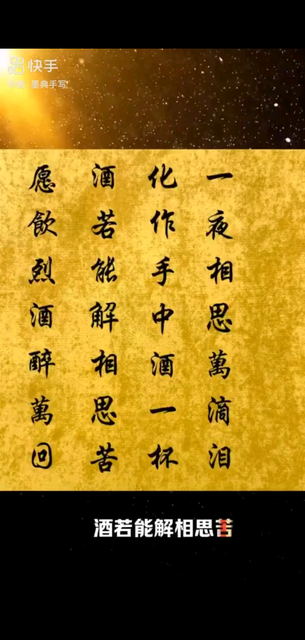 快手
墨典手写
一夜相思萬滴泪
化作手中酒一杯
酒若能解相思苦
愿飲烈酒醉萬回
酒若能解相思苦